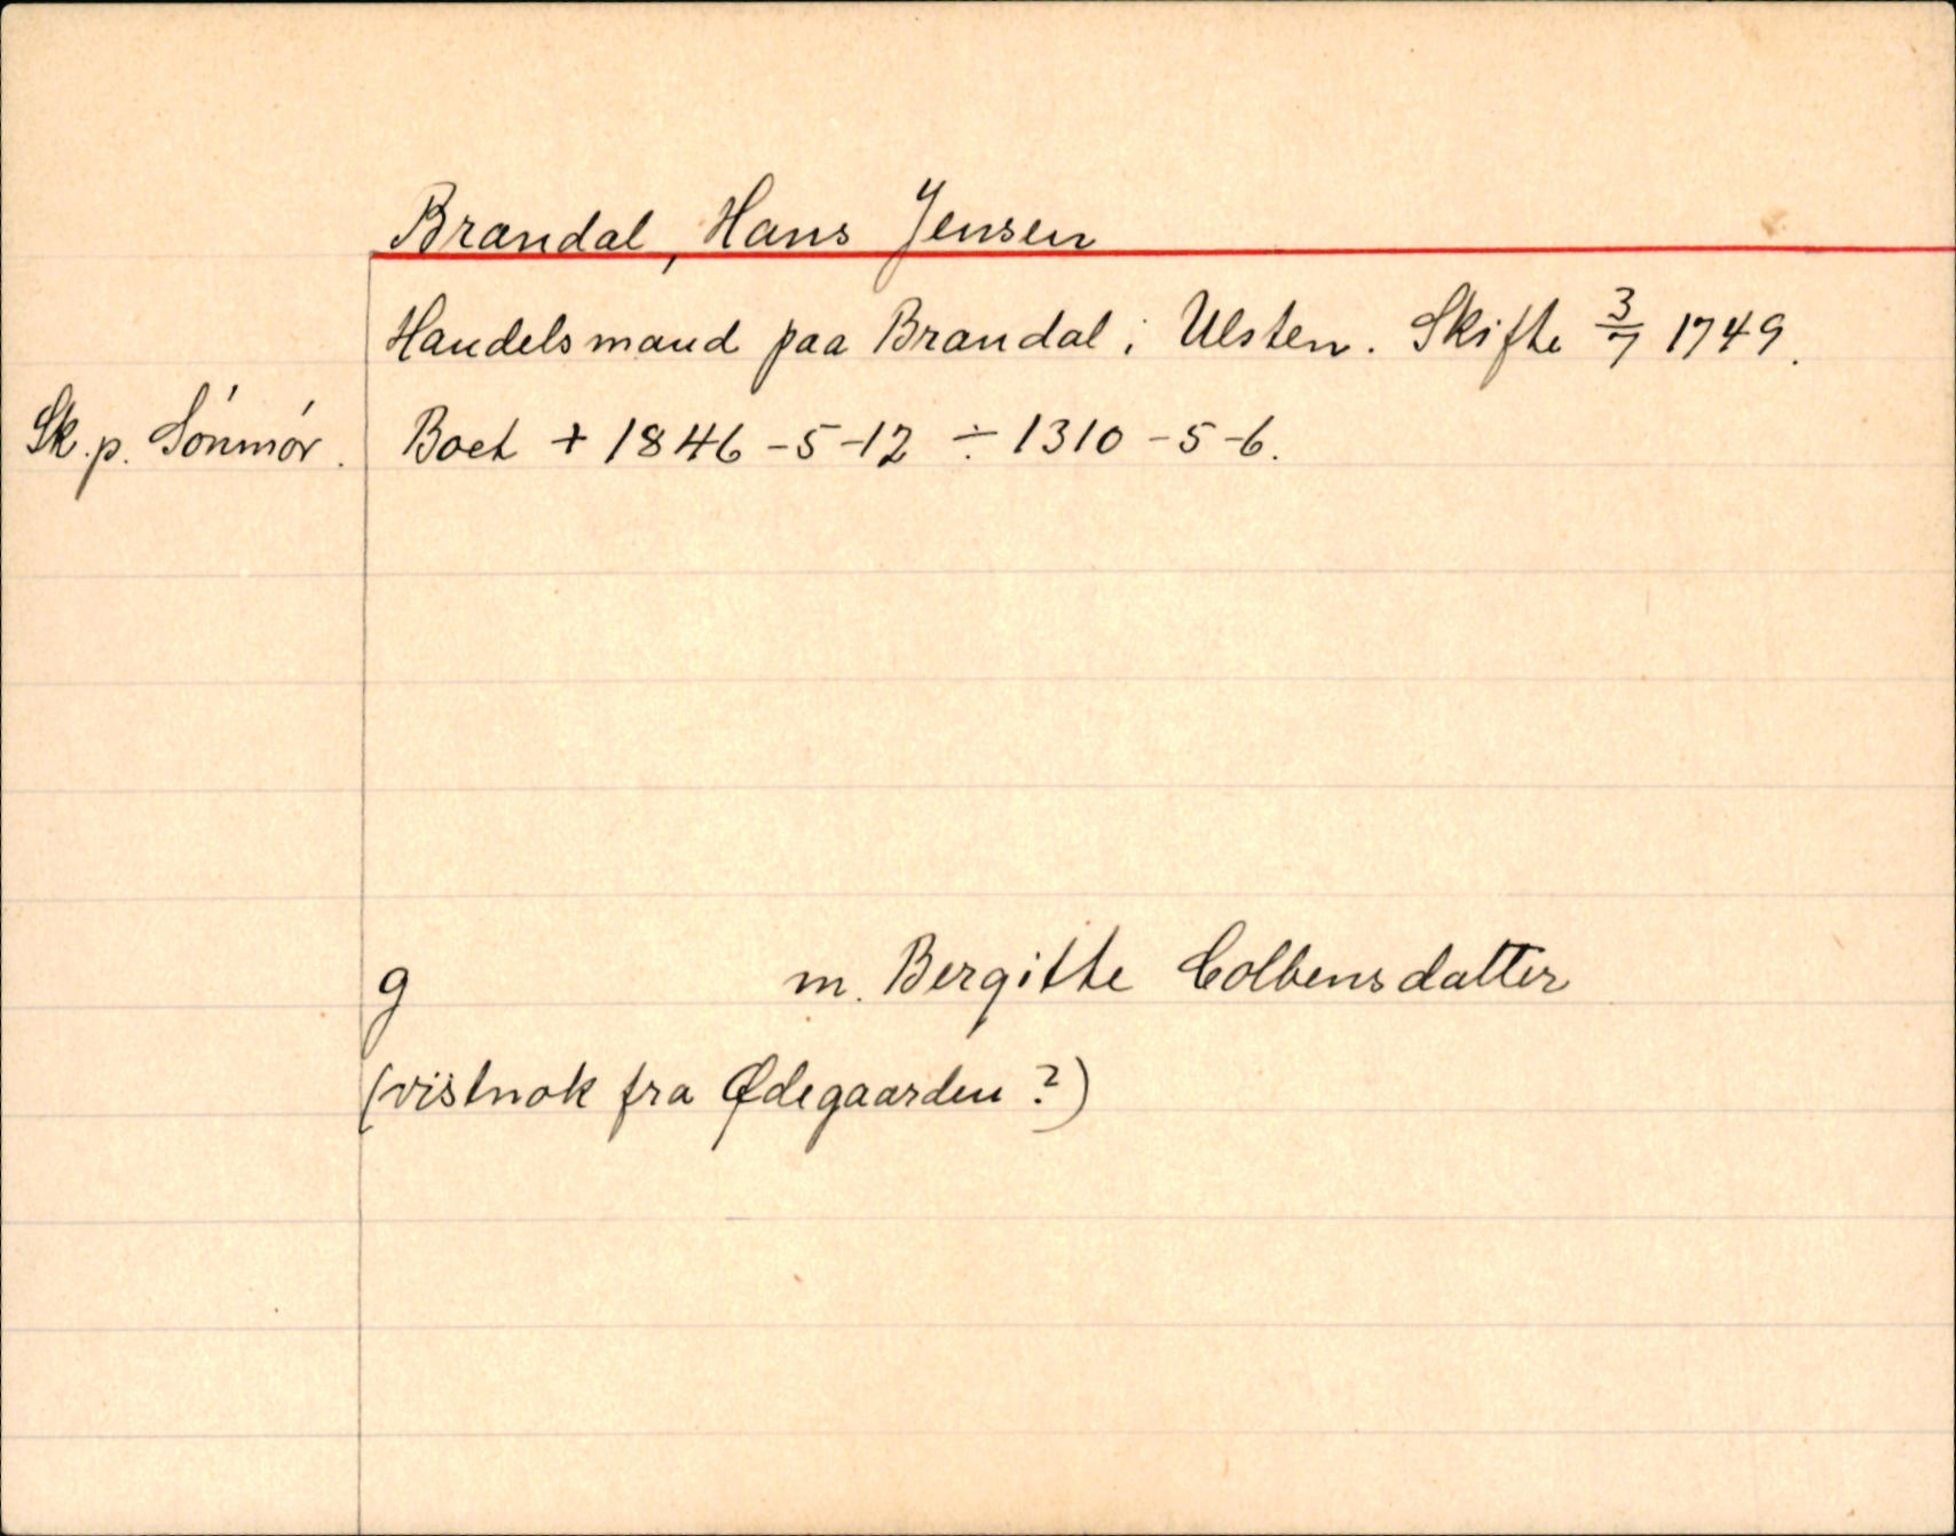 Brandal, Hans Jensen
Handelsmand paa Brandal i Ulsten. Skifte 3/7 1749.
Sk. p. Sönmör. Boet + 1846 - 5 - 12 ÷ 1310 - 5 - 6.
g m. Bergitte Colbensdatter
(vistnok fra Ødegaarden?)